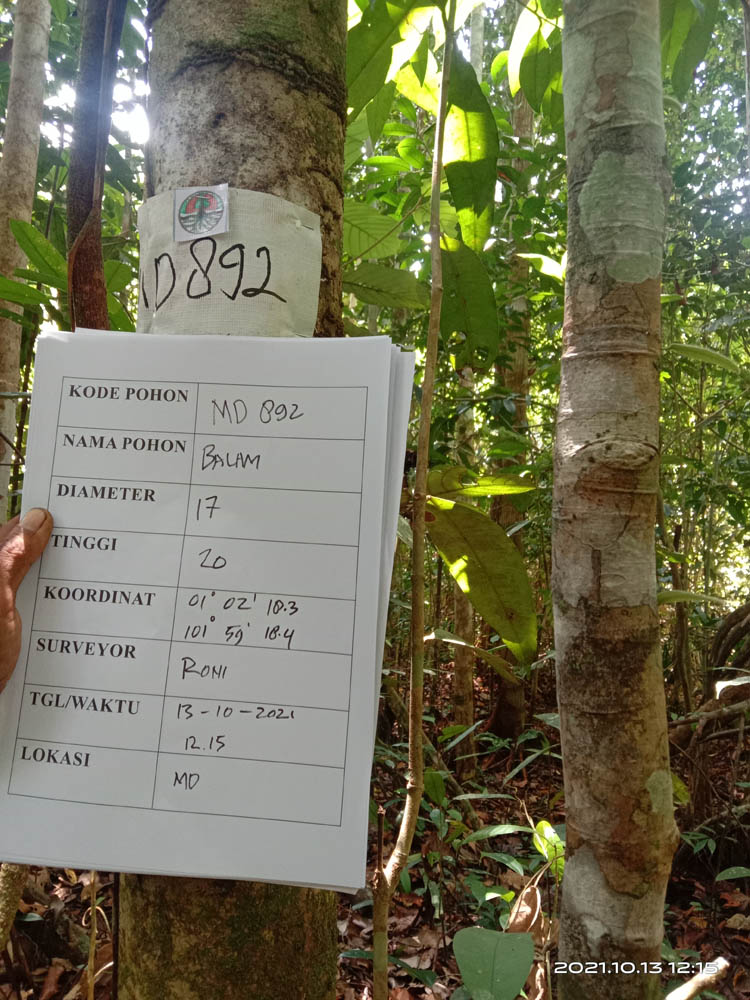 MD 892
KODE POHON MD 892
NAMA POHON BALAM
DIAMETER 17
TINGGI 20
KOORDINAT 01° 02' 18.3
101° 59' 18.4
SURVEYOR RONI
TGL/WAKTU 13-10-2021
12.15
LOKASI MD
2021.10.13 12:15